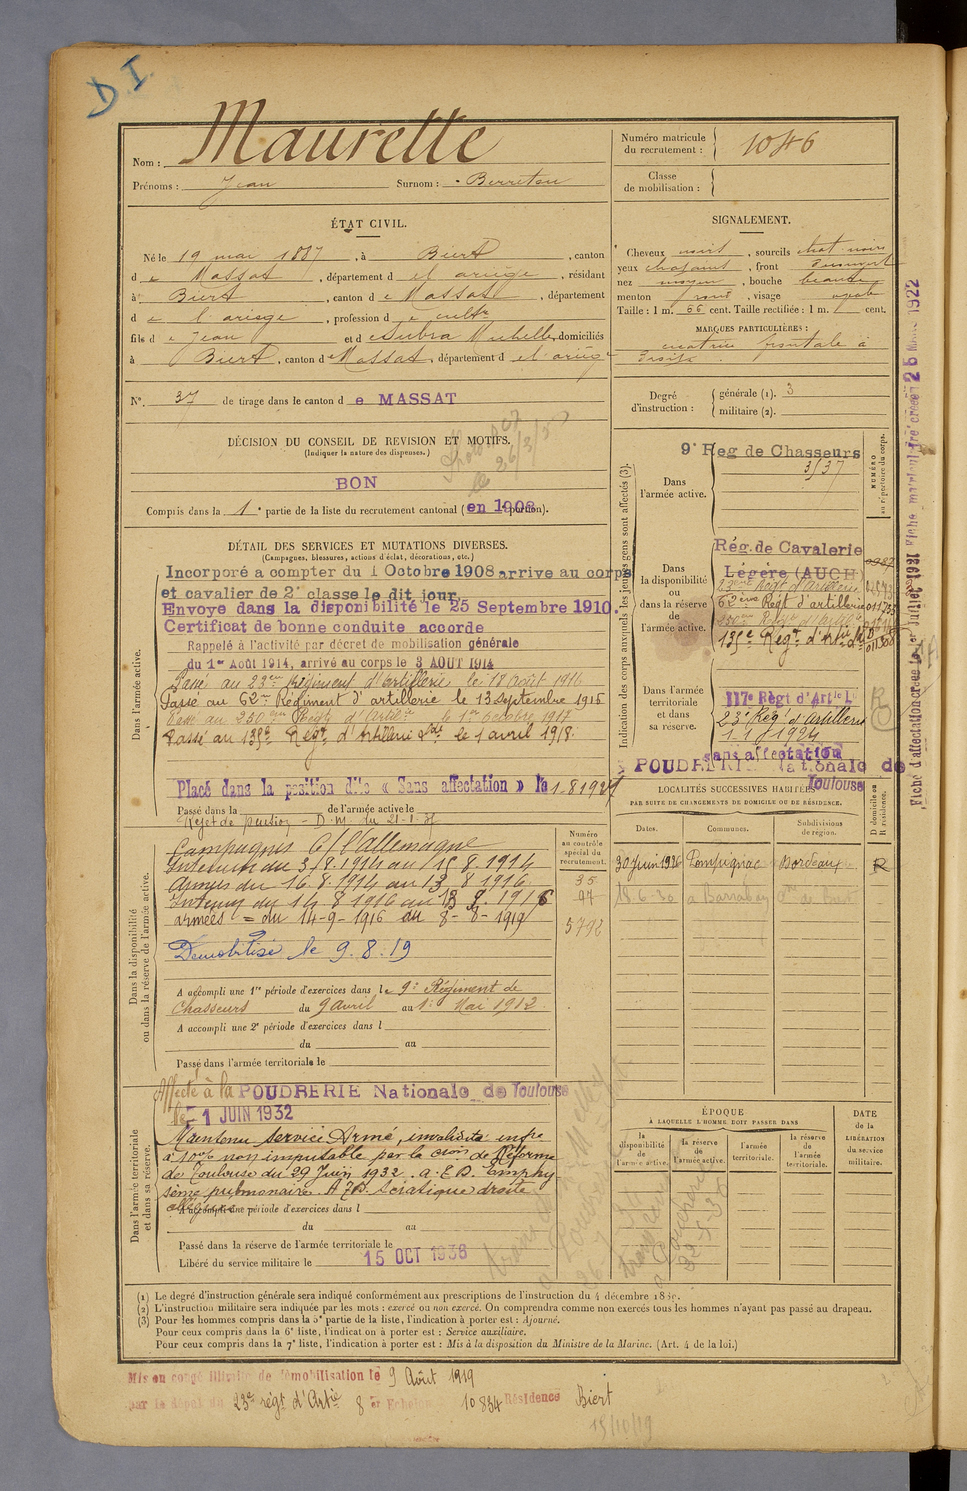 D I.
Nom : Maurette
Prénoms : Jean Surnom : - Berreton
Numéro matricule du recrutement : 1046
Classe de mobilisation :
ÉTAT CIVIL.
Né le 19 mai 1887, à Biert, canton
de Massat, département de l'ariège, résidant
à Biert, canton de Massat, département
de l'ariege, profession de cultr
fils de Jean et de Subra Michelle, domiciliés
à Biert, canton de Massat, département de l'ariège
N°. 37 de tirage dans le canton de MASSAT
DÉCISION DU CONSEIL DE REVISION ET MOTIFS.
(Indiquer la nature des dispenses.)
BON
Compris dans la 1e partie de la liste du recrutement cantonal (en 1908 portion).
SIGNALEMENT.
Cheveux noirs, sourcils chat noirs
yeux chatains, front découvert
nez moyen, bouche
menton rond, visage ovale
Taille : 1 m. 66 cent. Taille rectifiée : 1 m. cent.
MARQUES PARTICULIÈRES :
cicatrice frontale à
droite
Degré d'instruction : générale (1). 3
militaire (2).
DÉTAIL DES SERVICES ET MUTATIONS DIVERSES.
(Campagnes, blessures, actions d'éclat, décorations, etc.)
Dans l'armée active.
Incorporé a compter du 1 Octobre 1908 arrive au corps
et cavalier de 2e classe le dit jour.
Envoye dans la disponibilité le 25 Septembre 1910.
Certificat de bonne conduite accorde
Rappelé à l'activité par décret de mobilisation générale
du 1er Août 1914, arrivé au corps le 3 AOUT 1914
Passé au 23eme Régiment d'artillerie le 18 août 1916
Passé au 62me Régiment d'artillerie le 13 septembre 1916
Passé au 250eme Régt d'Artie le 1er octobre 1917
Passé au 135e Régt d'Artillerie Lde le 1 avril 1918.
Placé dans la position dite « Sans affectation » le 1-8 1924
Passé dans la de l'armée active le
Rejet de pension - D.M. du 21-1-
Indication des corps auxquels les jeunes gens sont affectés (3).
NUMÉRO au répertoire du corps.
Dans l'armée active.
9e Reg de Chasseurs
3/37
Dans la disponibilité ou dans la réserve de l'armée active.
Rég. de Cavalerie
Légère (AUCH)
23eme Régt d'artillerie
62ème Régt d'artillerie 011735
135e Régt d'Artie Lde
Dans l'armée territoriale et dans sa réserve.
117e Règt d'Artie Lde
23e Régt d'artillerie
1-1-1924
sans affectation
POUDRERIE Nationale de Toulouse
Dans la disponibilité ou dans la réserve de l'armée active.
Campagnes C/ l'Allemagne
Intérieur du 3/8.1914 au 15.8.1914
Armées du 16.8.1914 au 13 8 1916
Intérieur du 14 8 1916 au 13 9. 1916
armées = du 14-9-1916 au 8-8-1919
Démobilisé le 9.8.19
A accompli une 1re période d'exercices dans le 9e Régiment de
Chasseurs du 9 avril au 1er Mai 1912
A accompli une 2e période d'exercices dans l
du au
Passé dans l'armée territoriale le
Numéro au contrôle spécial du recrutement.
35
97
5792
LOCALITÉS SUCCESSIVES HABITÉES
PAR SUITE DE CHANGEMENTS DE DOMICILE OU DE RÉSIDENCE.
Dates. Communes. Subdivisions de région. D domicile ou R résidence.
30 Juin 1926 Pompignac Bordeaux R
18-6-30
Dans l'armée territoriale et dans sa réserve.
Affecté à la POUDRERIE Nationale de Toulouse
le 1 JUIN 1932
Maintenu Service Armé, invalidité infre
à 10% non imputable par la Cion de Réforme
de Toulouse du 29 Juin 1932. a.E.D. Emphy
sème pulmonaire. A.7D. Sciatique droite
A accompli une période d'exercices dans l
du au
Passé dans la réserve de l'armée territoriale le
Libéré du service militaire le 15 OCT 1936
ÉPOQUE
À LAQUELLE L'HOMME DOIT PASSER DANS
la disponibilité de l'armée active.
la réserve de l'armée active.
l'armée territoriale.
la réserve de l'armée territoriale.
DATE de la LIBÉRATION du service militaire.
(1) Le degré d'instruction générale sera indiqué conformément aux prescriptions de l'instruction du 4 décembre 1889.
(2) L'instruction militaire sera indiquée par les mots : exercé ou non exercé. On comprendra comme non exercés tous les hommes n'ayant pas passé au drapeau.
(3) Pour les hommes compris dans la 5e partie de la liste, l'indication à porter est : Ajourné.
Pour ceux compris dans la 6e liste, l'indication à porter est : Service auxiliaire.
Pour ceux compris dans la 7e liste, l'indication à porter est : Mis à la disposition du Ministre de la Marine. (Art. 4 de la loi.)
Mis en congé illimité de démobilisation le 9 Août 1919
par le dépôt du 23e régt d'Artie 8 er Echelon 10834 Résidence Biert
15/10/19